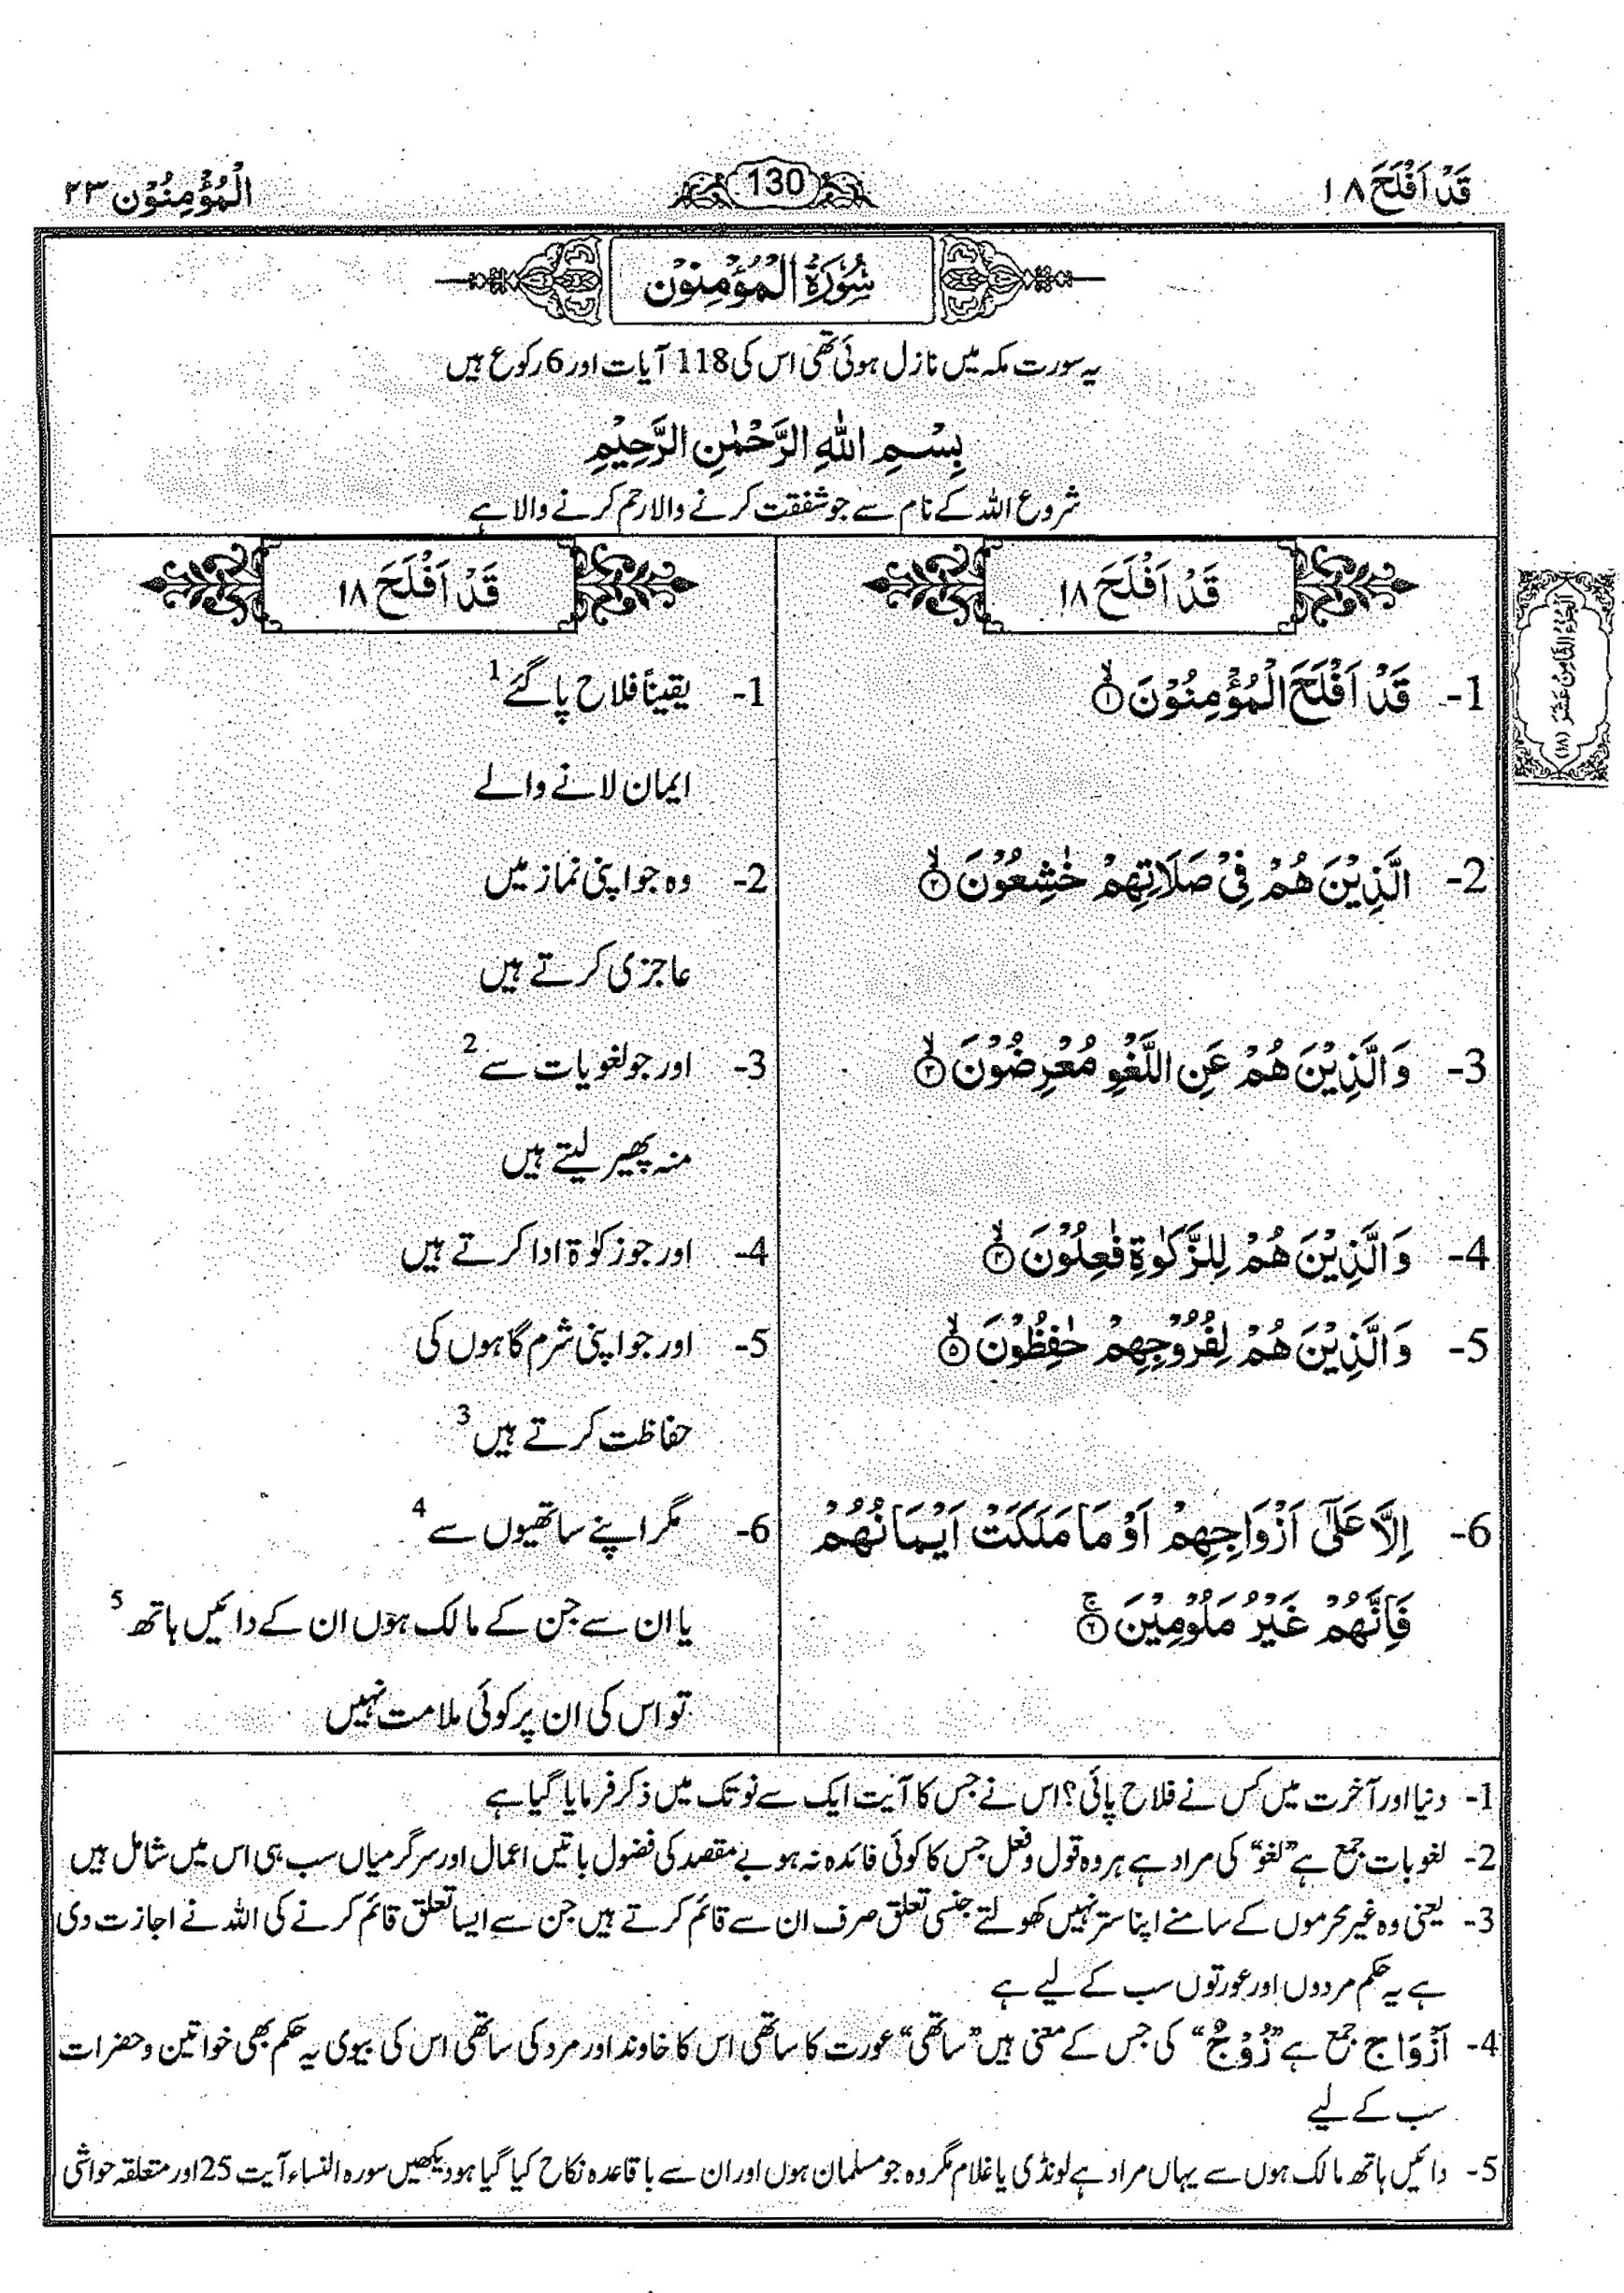 قَدْ اَفْلَحَ ۱۸
130
الْمُؤْمِنُوْن ۲۳
سُوْرَةُ الْمُؤْمِنُوْن
یہ سورت مکہ میں نازل ہوئی تھی اس کی 118 آیات اور 6 رکوع ہیں
بِسْمِ اللّٰهِ الرَّحْمٰنِ الرَّحِيْمِ
شروع اللہ کے نام سے جو شفقت کرنے والا رحم کرنے والا ہے
قَدْ اَفْلَحَ ۱۸
1- قَدْ اَفْلَحَ الْمُؤْمِنُوْنَ ۙ ۱
2- الَّذِيْنَ هُمْ فِيْ صَلَاتِهِمْ خٰشِعُوْنَ ۙ ۲
3- وَالَّذِيْنَ هُمْ عَنِ اللَّغْوِ مُعْرِضُوْنَ ۙ ۳
4- وَالَّذِيْنَ هُمْ لِلزَّكٰوةِ فٰعِلُوْنَ ۙ ۴
5- وَالَّذِيْنَ هُمْ لِفُرُوْجِهِمْ حٰفِظُوْنَ ۙ ۵
6- اِلَّا عَلٰٓى اَزْوَاجِهِمْ اَوْ مَا مَلَكَتْ اَيْمَانُهُمْ
فَاِنَّهُمْ غَيْرُ مَلُوْمِيْنَ ۚ ۶
قَدْ اَفْلَحَ ۱۸
1- یقیناً فلاح پا گئے 1
ایمان لانے والے
2- وہ جو اپنی نماز میں
عاجزی کرتے ہیں
3- اور جو لغویات سے 2
منہ پھیر لیتے ہیں
4- اور جو زکوٰۃ ادا کرتے ہیں
5- اور جو اپنی شرم گاہوں کی
حفاظت کرتے ہیں 3
6- مگر اپنے ساتھیوں سے 4
یا ان سے جن کے مالک ہوں ان کے دائیں ہاتھ 5
تو اس کی ان پر کوئی ملامت نہیں
1- دنیا اور آخرت میں کس نے فلاح پائی؟ اس نے جس کا آیت ایک سے نو تک میں ذکر فرمایا گیا ہے
2- لغویات جمع ہے ”لغو“ کی مراد ہے ہر وہ قول و فعل جس کا کوئی فائدہ نہ ہو بے مقصد کی فضول باتیں اعمال اور سرگرمیاں سب ہی اس میں شامل ہیں
3- یعنی وہ غیر محرموں کے سامنے اپنا ستر نہیں کھولتے جنسی تعلق صرف ان سے قائم کرتے ہیں جن سے ایسا تعلق قائم کرنے کی اللہ نے اجازت دی
ہے یہ حکم مردوں اور عورتوں سب کے لیے ہے
4- اَزْوَاج جمع ہے ”زُوْجٌ“ کی جس کے معنی ہیں ”ساتھی“ عورت کا ساتھی اس کا خاوند اور مرد کی ساتھی اس کی بیوی یہ حکم بھی خواتین و حضرات
سب کے لیے
5- دائیں ہاتھ مالک ہوں سے یہاں مراد ہے لونڈی یا غلام مگر وہ جو مسلمان ہوں اور ان سے باقاعدہ نکاح کیا گیا ہو دیکھیں سورہ النساء آیت 25 اور متعلقہ حواشی
الجزء الثامن عشر (۱۸)